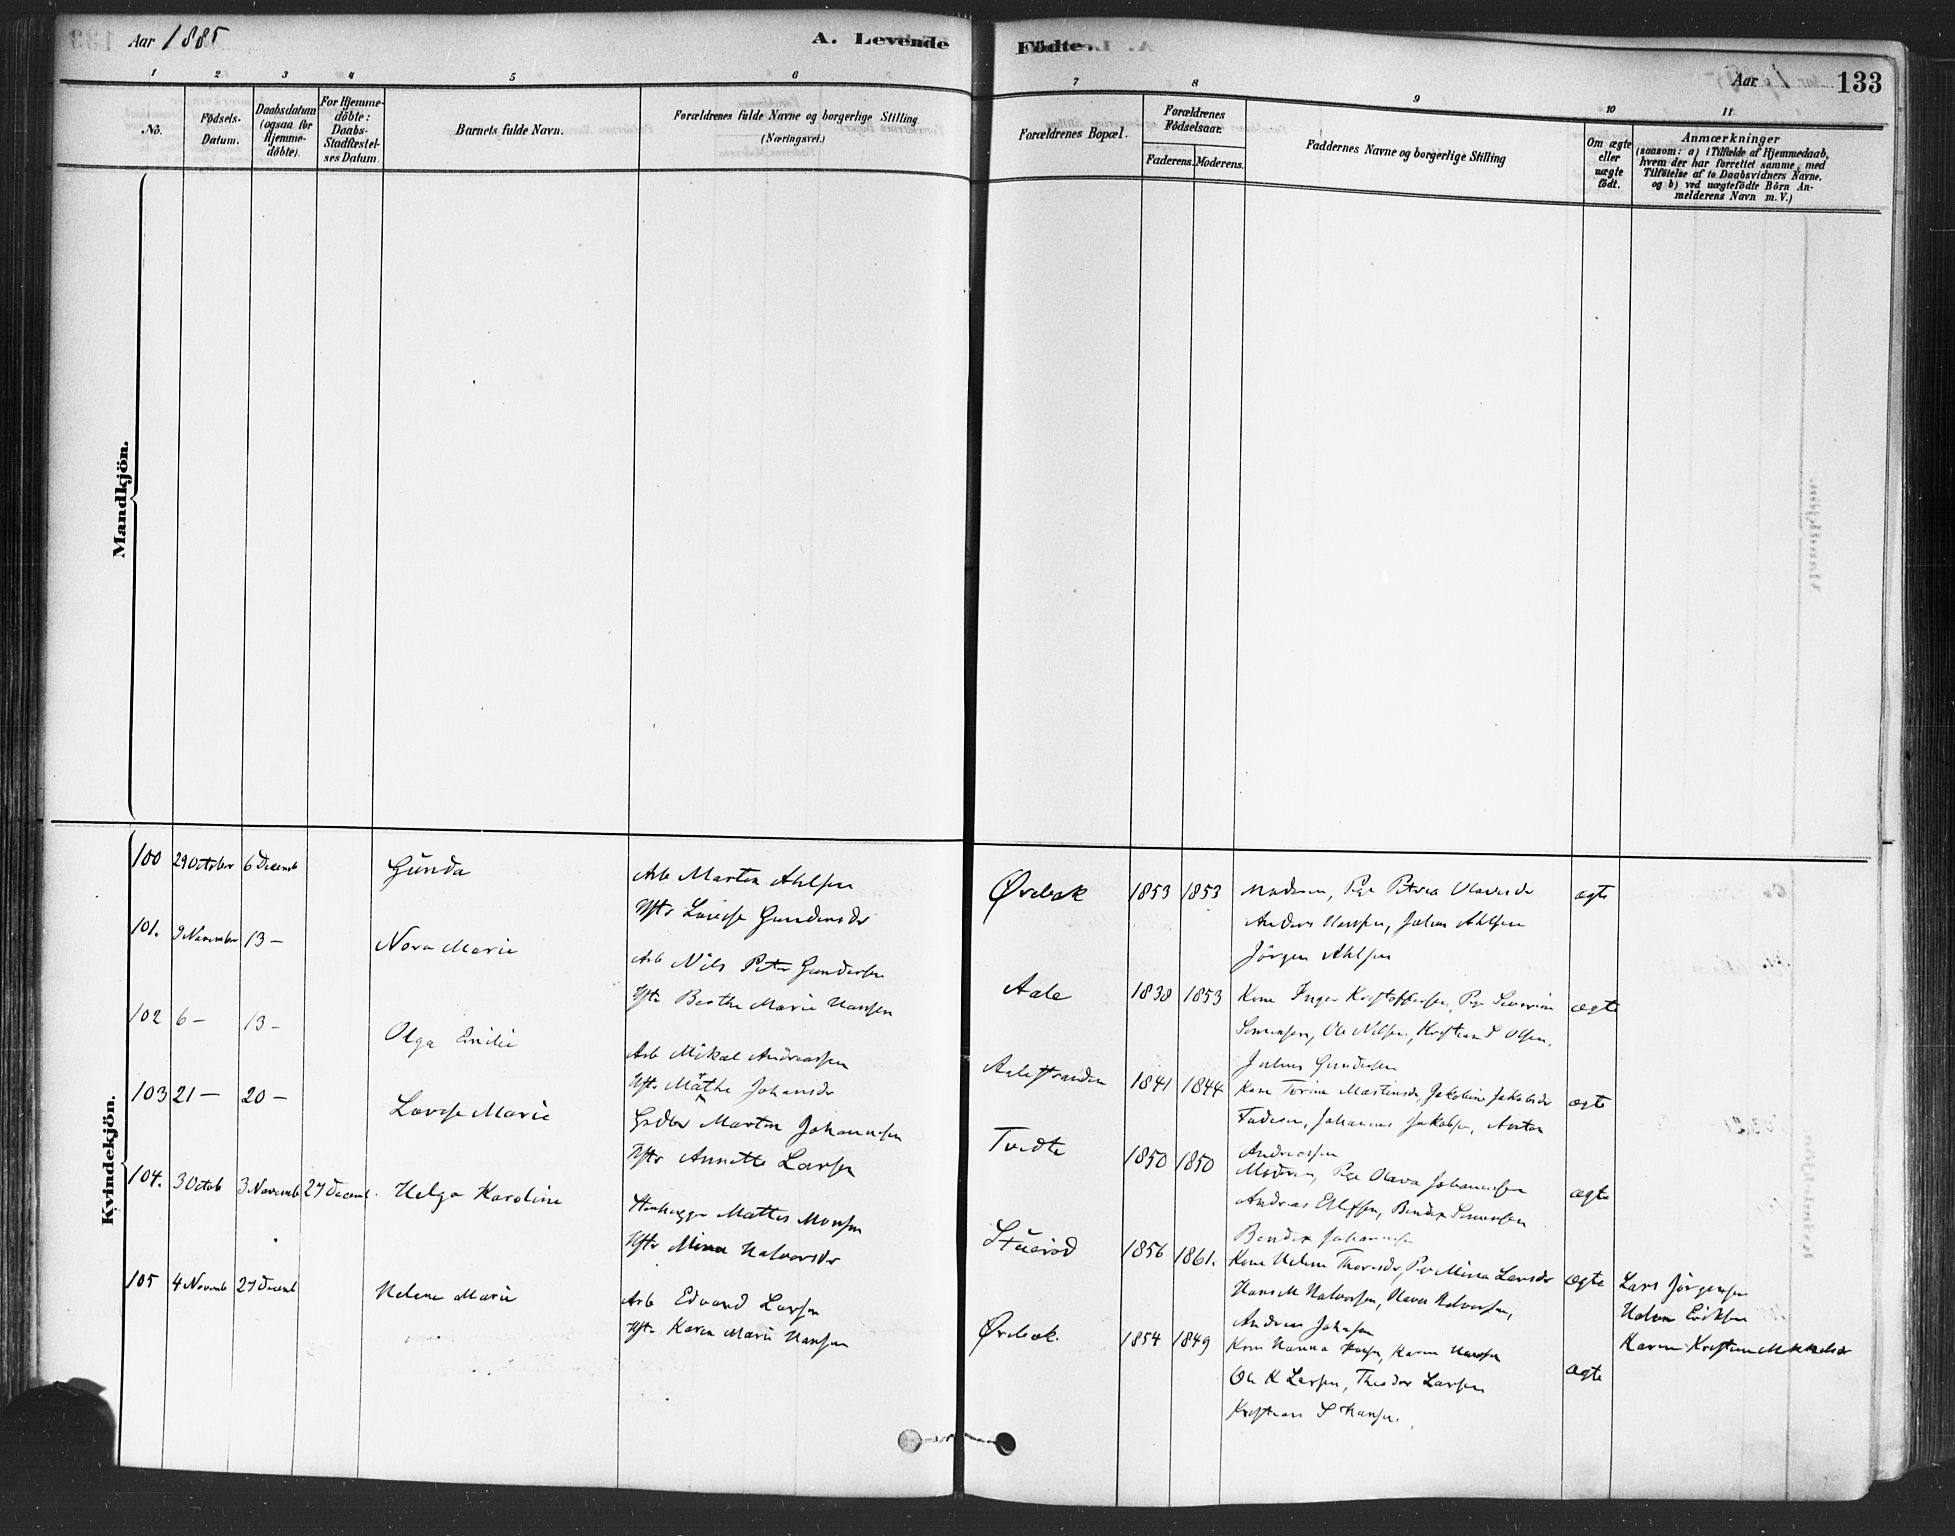 Aar 1885
A. Levende
Fødte.
Aar
133
1 2 3 4 5 6 7 8 9 10 11
No.
Födsels-Datum.
Daabsdatum (ogsaa for Hjemme-döbte).
For Hjemme-döbte: Daabs-Stadfæstel-ses Datum.
Barnets fulde Navn.
Forældrenes fulde Navne og borgerlige Stilling (Næringsvei.)
Forældrenes Bopæl.
Forældrenes Födselsaar.
Faderens. Moderens.
Faddernes Navne og borgerlige Stilling
Om ægte eller uægte födt.
Anmærkninger
(saasom: a) i Tilfælde af Hjemmedaab,
hvem der har forrettet samme, med
Tilföielse af to Daabsvidners Navne.
og b) ved uægtefödte Börn An-
melderens Navn m. V.)
Mandkjön.
Kvindekjön.
100 29 October 6 Decemb Gunda
Arb Martin Ahlsen
Hstr Lovise Gundersdr
Ørebæk 1853 1853
Moderen, Pge Petrea Olavesdr
Anders Hansen, Julius Ahlsen
Jörgen Ahlsen
ægte
101. 9 November 13 – Nora Marie
Arb Nils Peter Gundersen
Hstr Berthe Marie Hansen
Aale 1838 1853
Kone Inger Kristoffersen, Pge Severine
Sörensen, Ole Nilsen, Kristian S Olsen,
Julius Gundersen
ægte
102 6 – 13 – Olga Emilie
Arb Mikal Andreassen
Hstr Mathe Johansdr
Aalestranden 1841 1844
Kone Torine Martinsdr, Jakobine Jakobsdr
Faderen, Johannes Jakobsen, Anton
Andreassen
ægte
103 21 – 20 – Lovise Marie
Martin Johannesen
Hstr Annette Larsen
Tvedte 1850 1850
Moderen, Pge Olava Johannesen
Andreas Ellefsen, Bendix Sörensen
Bendix Johannesen
ægte
104. 3 Octob 3 Novemb 27 Decemb. Helga Karoline
Stenhugger Mattis Monsen
Hstr Mina Halvorsdr
Stueröd 1856 1861.
Kone Helene Thoresdr, Pge Mina Larsdr
Hans M Halvorsen, Halvor Halvorsen,
Andreas Johnsen
ægte
Lars Jörgensen
Helene Eriksen
Karen Kristine Mikkelsdr
105 4 Novemb 27 Decemb Helene Marie
Arb Edvard Larsen
Hstr Karen Marie Hansen
Ørebæk. 1854 1849
Kone Hanna Hansen, Karen Hansen
Ole K Larsen, Theodor Larsen
Kristian S Hansen.
ægte